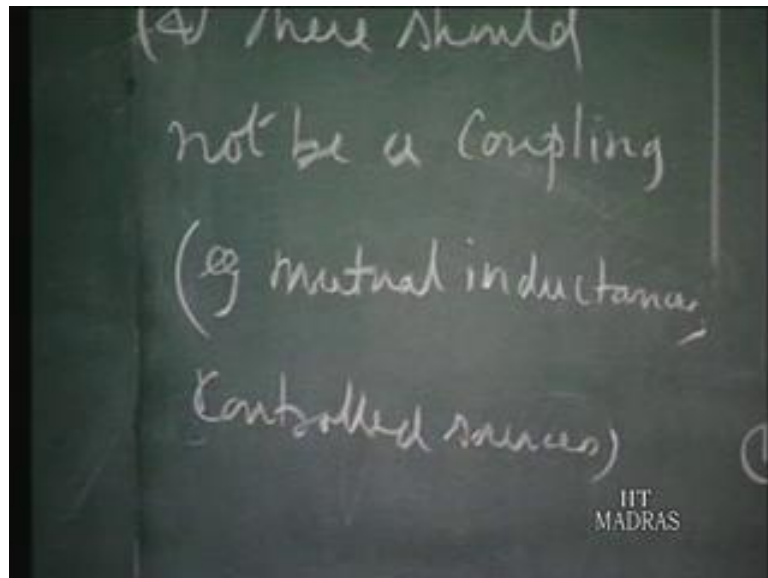 (4) There should
not be a Coupling
(eg mutual inductances,
Controlled sources)
(
IIT
MADRAS